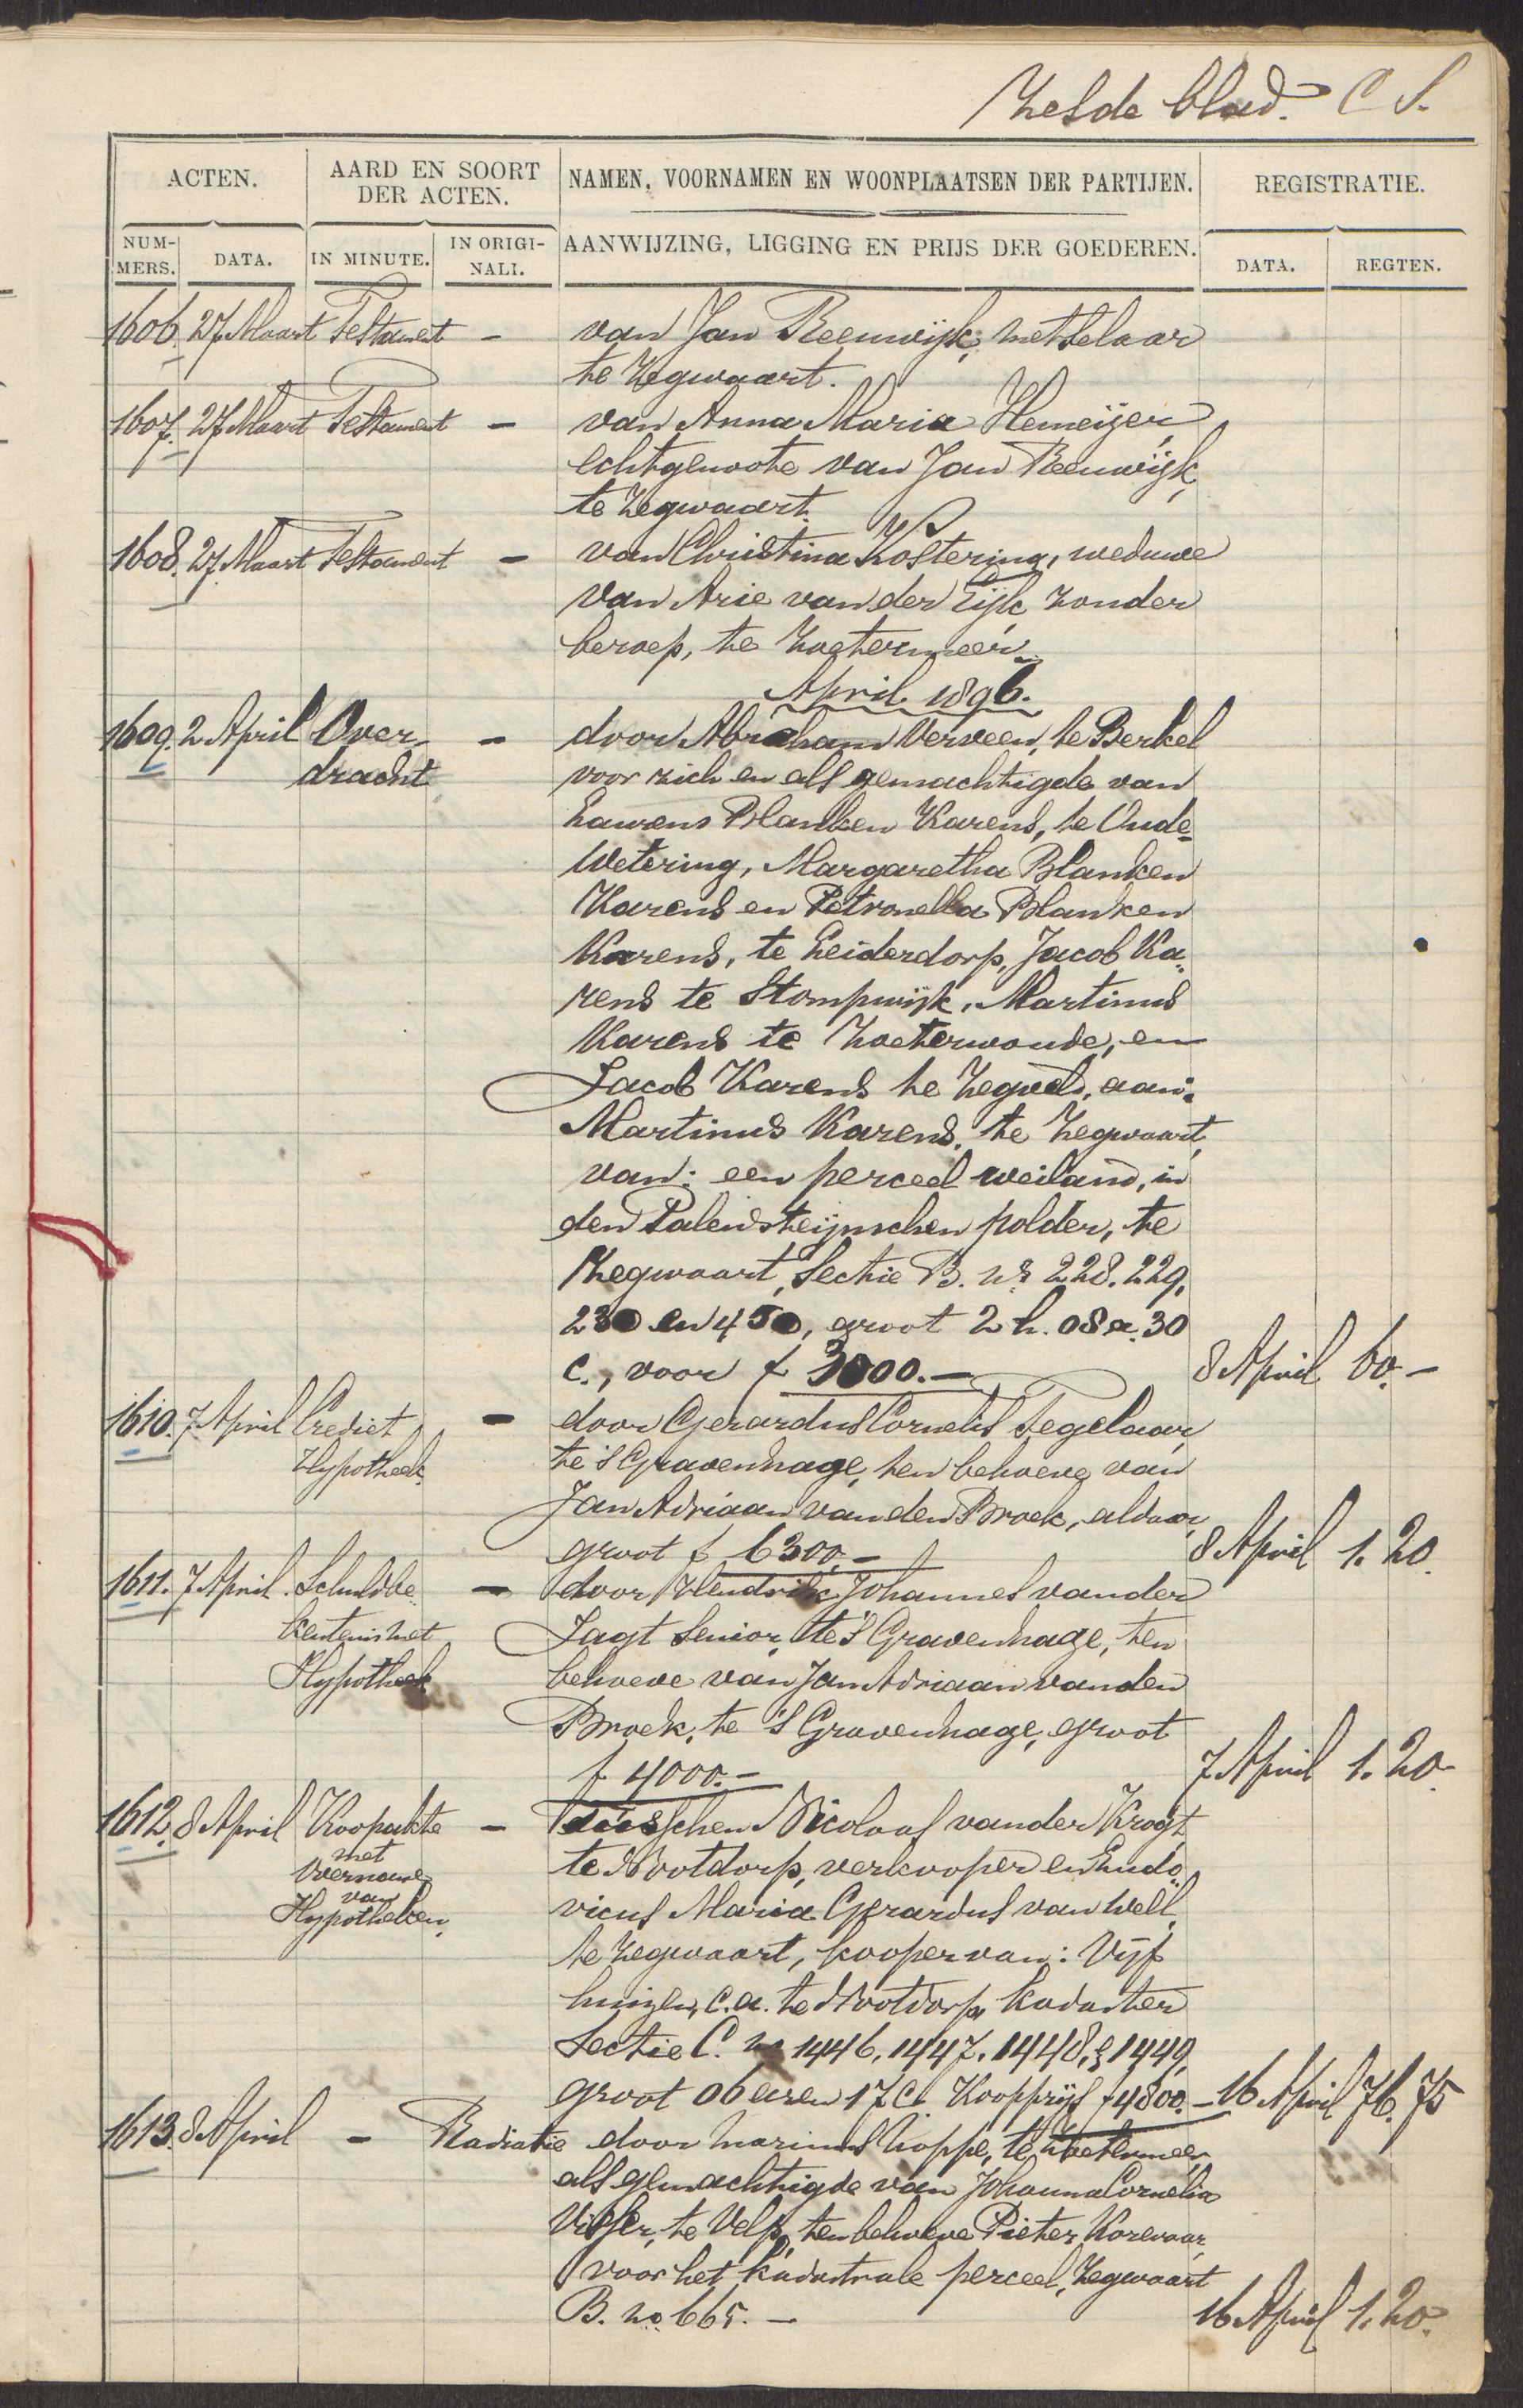 Zesde blad. C S.
ACTEN. AARD EN SOORT DER ACTEN. NAMEN, VOORNAMEN EN WOONPLAATSEN DER PARTIJEN. REGISTRATIE.
NUM-MERS. DATA. IN MINUTE. IN ORIGI-NALI. AANWIJZING, LIGGING EN PRIJS DER GOEDEREN. DATA. REGTEN.
1606. 27 Maart Testament - van Jan Reeuwijk, metselaar
te Zegwaart.
1607. 27 Maart Testament - van Anna Maria Hemeijer,
echtgenoote van Jan Reeuwijk,
te Zegwaart.
1608. 27 Maart Testament - van Christina Kostering, weduwe
van Arie van der Eijk, zonder
beroep, te Zoetermeer.
April 1896.
1609. 2 April Over- - door Abraham Verveen, te Berkel
dracht voor zich en als gemachtigde van
Laurens Blanken Karens, te Oude-
Wetering, Margaretha Blanken
Karens en Petronella Blanken
Karens, te Leiderdorp, Jacob Ka-
rens te Stompwijk, Martinus
Karens te Zoeterwoude, en
Jacob Karens te Zegveld, aan:
Martinus Karens, te Zegwaart,
van: een perceel weiland, in
den Palensteijnschen polder, te
Zegwaart, Sectie B. no 228. 229,
230 en 450, groot 2 h. 08 a. 30
c., voor f 3000.- 8 April 60.-
1610. 7 April Crediet - door Gerardus Cornelis Tegelaar,
Hypotheek te 's Gravenhage, ten behoeve van
Jan Adriaan van den Broek, aldaar,
groot f 6300.- 8 April 1.20.
1611. 7 April. Schuldbe- - door Hendrik Johannes van der
kentenis met Jagt Senior, te 's Gravenhage, ten
Hypotheek behoeve van Jan Adriaan van den
Broek, te 's Gravenhage, groot
f 4000.- 7 April 1.20.
1612. 8 April Koopakte - tusschen Nicolaas van der Krogt,
met
te Nootdorp, verkooper en Ludo-
Overname
van
vicus Maria Gerardus van Well,
Hypotheken,
te Zegwaart, kooper van: Vijf
huizen, c.a. te Nootdorp, kadaster
Sectie C. no 1446, 1447, 1448, & 1449,
groot 06 aren 17 c. Koopprijs f 4800.- 16 April 76.75
1613. 8 April - Radiatie door Marinus Hoppe, te Zoetermeer,
als gemachtigde van Johanna Cornelia
Visser, te Velp, ten behoeve Pieter Korevaar,
voor het kadastrale perceel, Zegwaart
B. no 665. - 16 April 1.20.